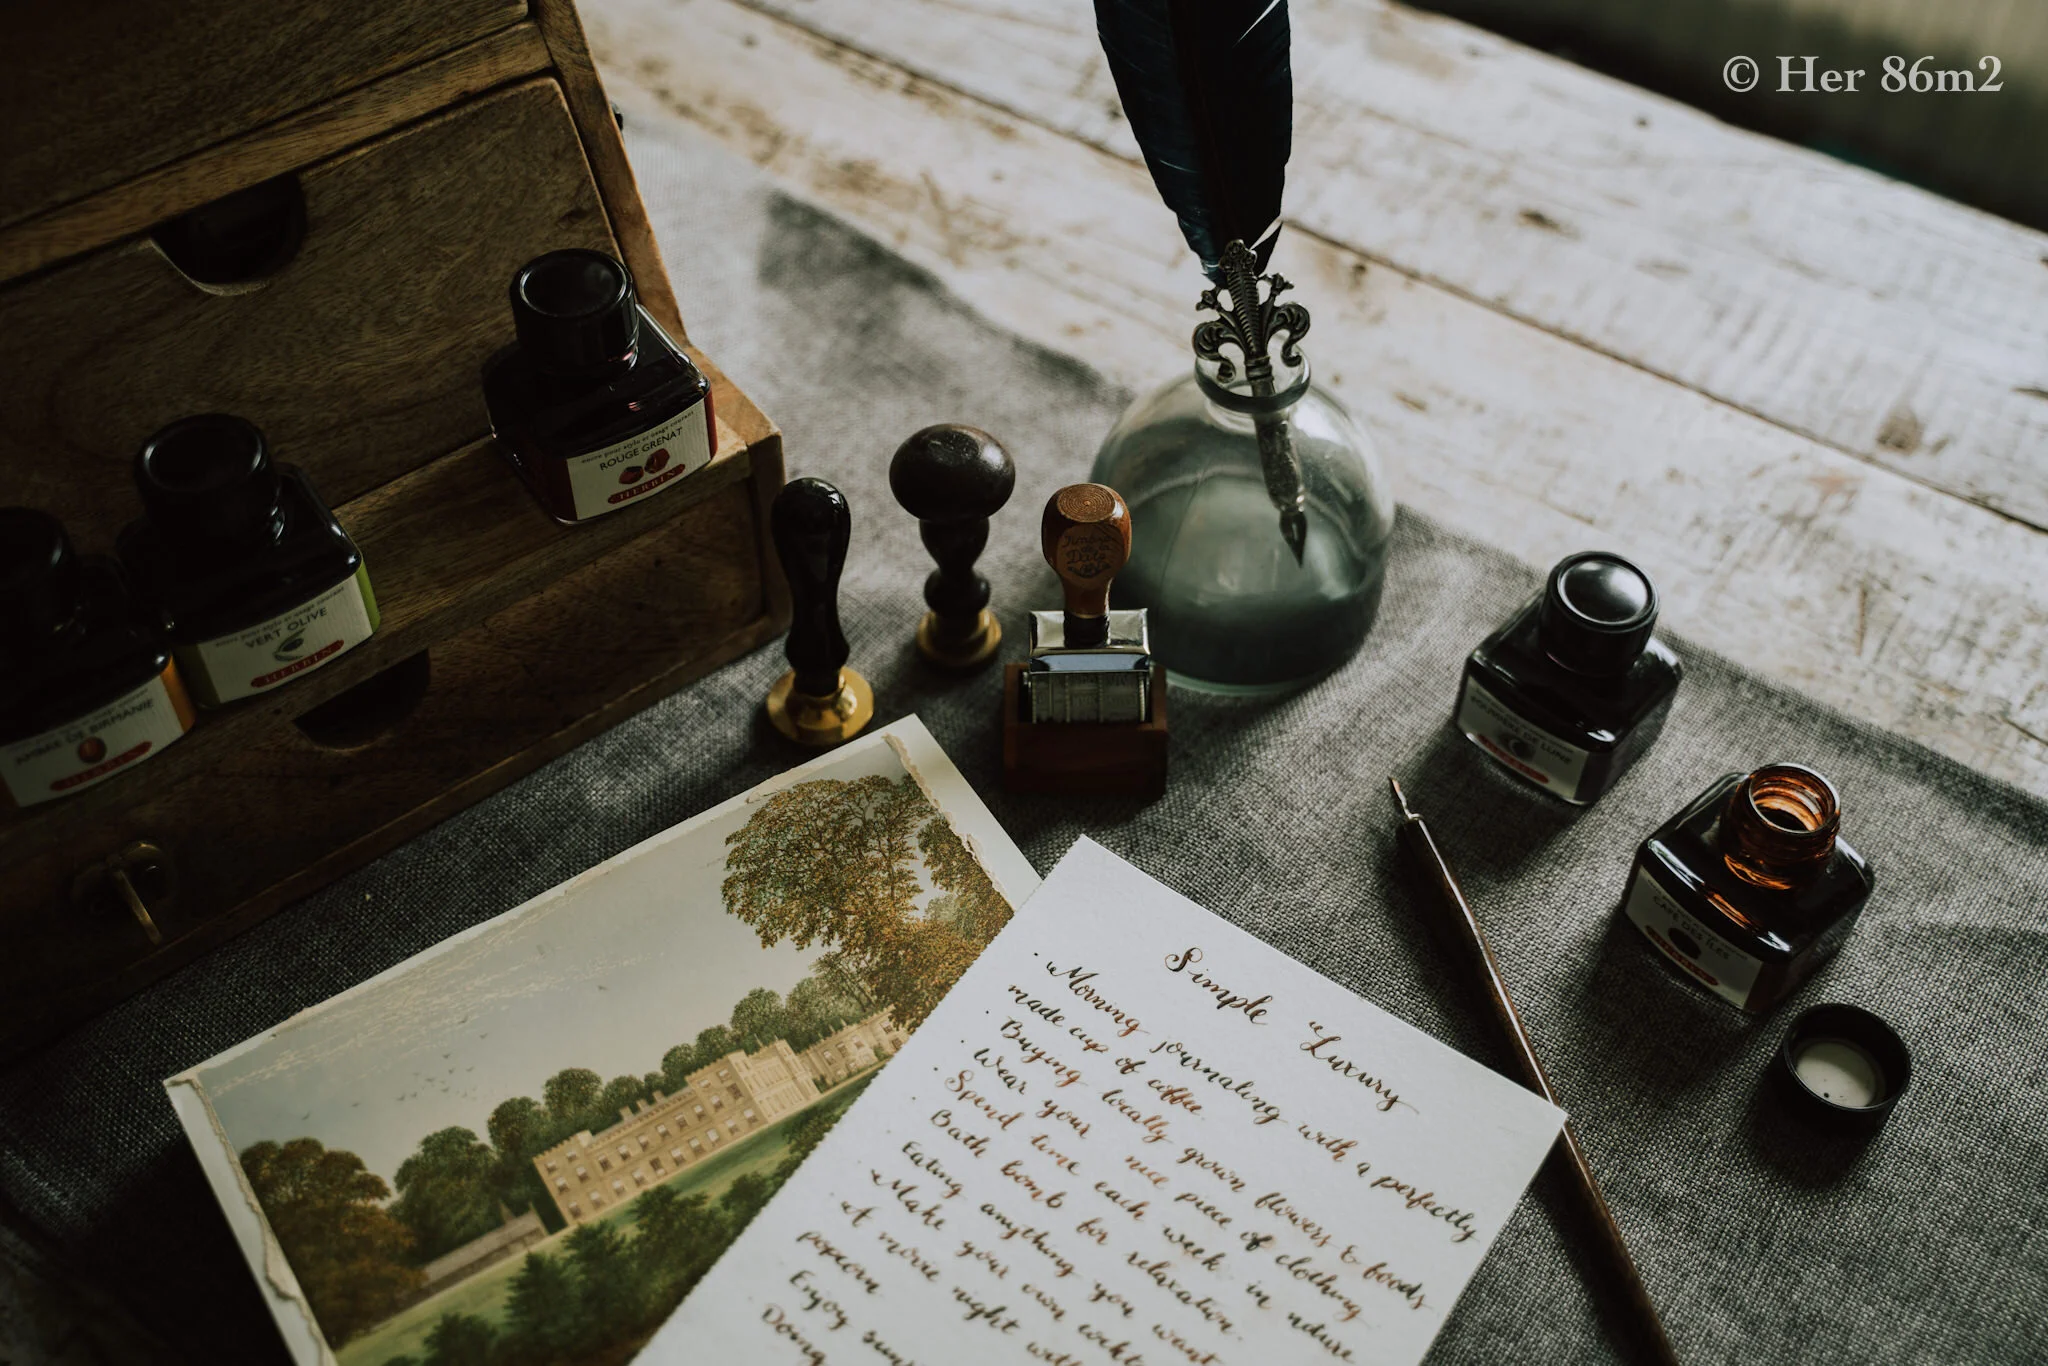 © Her 86m2
ROUGE GRENAT
HERBIN
VERT OLIVE
HERBIN
AMBRE DE BIRMANIE
POUSSIÈRE DE LUNE
CAFÉ DES ÎLES
Simple Luxury
· Morning journaling with a perfectly
made cup of coffee
· Buying locally grown flowers & foods
· Wear your nice piece of clothing
· Spend time each week in nature
· Bath bomb for relaxation.
· Eating anything you want
· Make your own
· A movie night with
popcorn
Enjoy
Doing